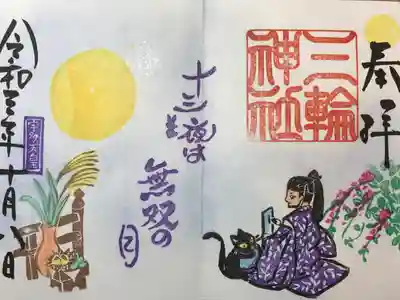 奉拝
三輪
神社
十三夜は
無双の
月
令和三年十月八日